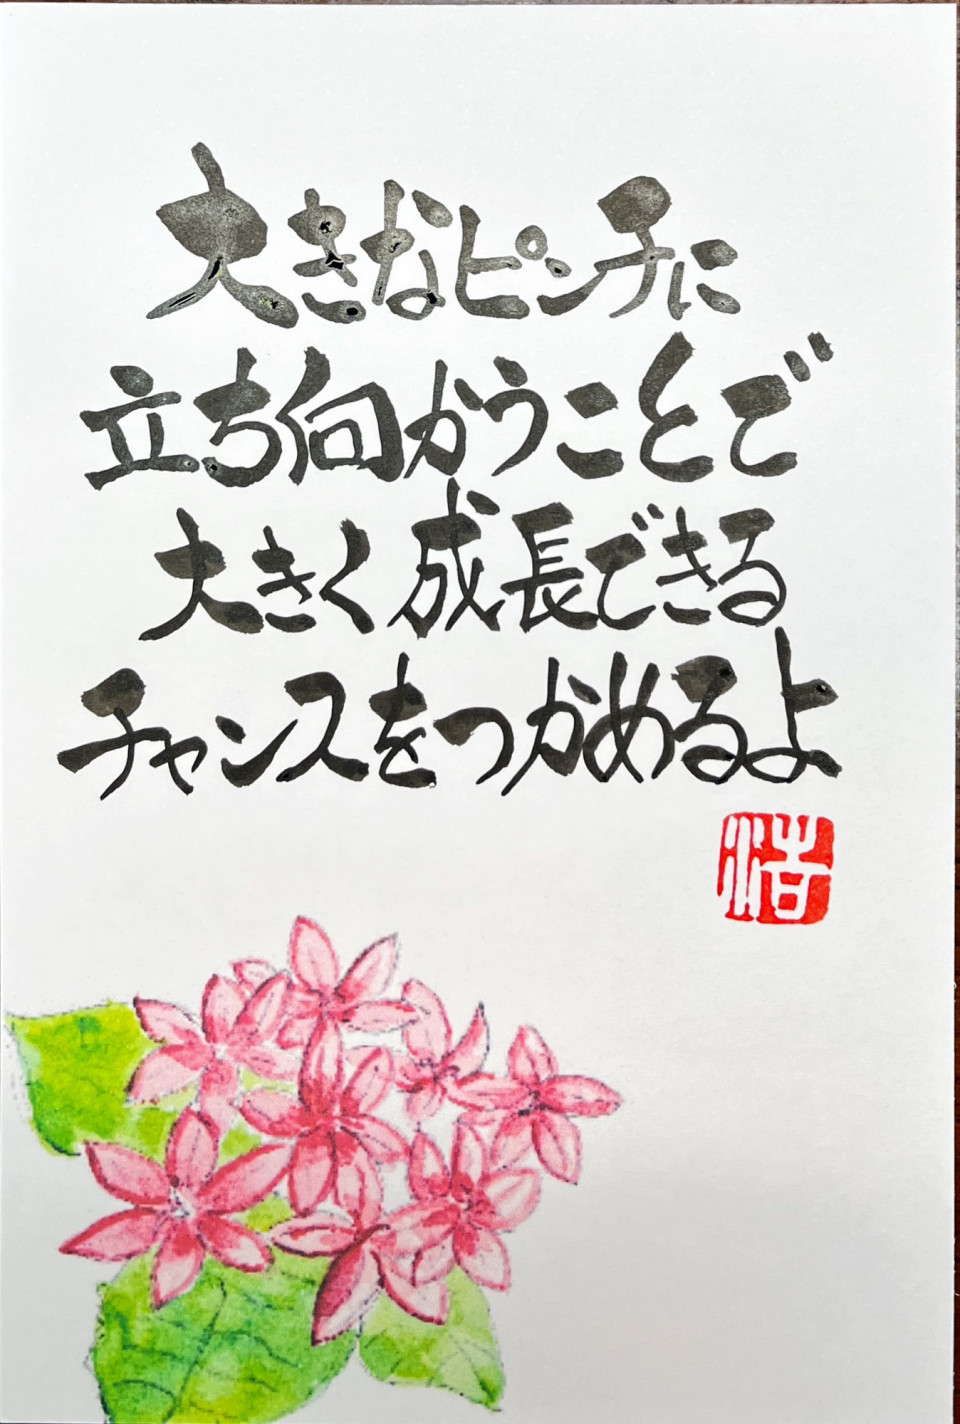 大きなピンチに
立ち向かうことで
大きく成長できる
チャンスをつかめるよ
浩